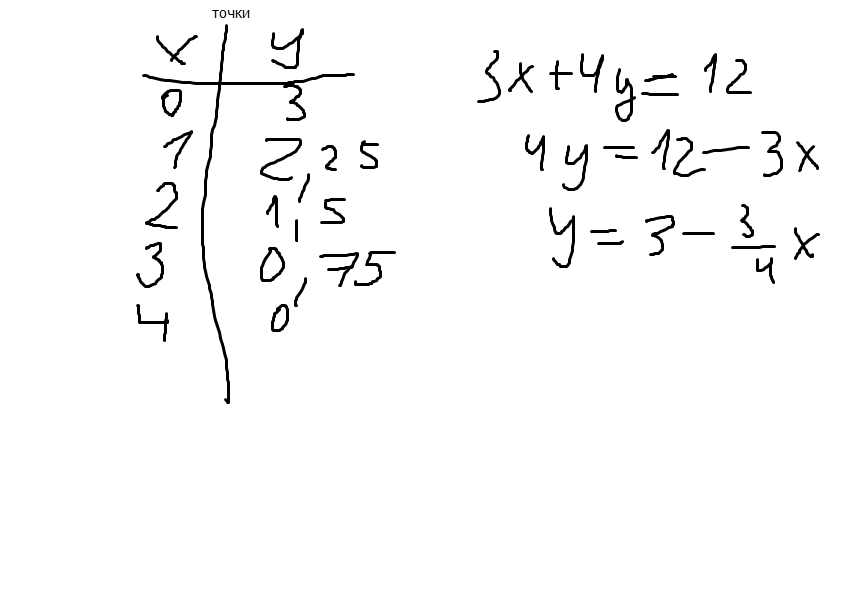 точки
x y
0 3
1 2,25
2 1,5
3 0,75
4 0
3x+4y=12
4y=12-3x
y=3-3/4x